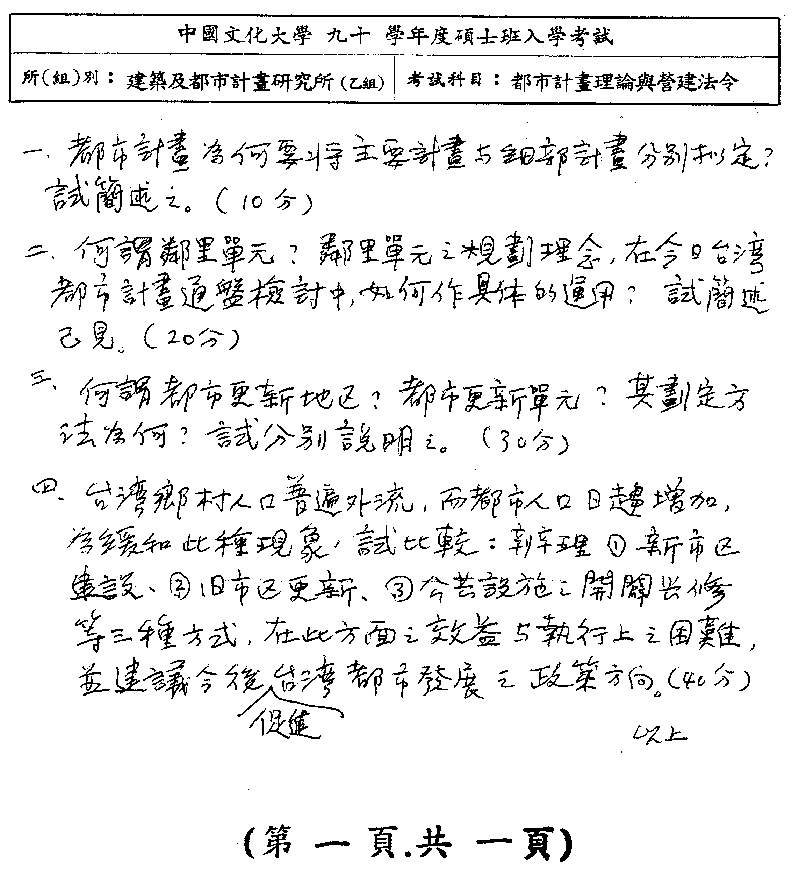 中國文化大學 九十 學年度碩士班入學考試
所(組)別：建築及都市計畫研究所(乙組) 考試科目：都市計畫理論與營建法令
一、都市計畫為何要將主要計畫与細部計畫分別拟定？
試簡述之。(10分)
二、何謂鄰里單元？鄰里單元之規劃理念，在今日台湾
都市計畫通盤檢討中，如何作具体的運用？試簡述
己見。(20分)
三、何謂都市更新地区？都市更新單元？其劃定方
法為何？試分別說明之。(30分)
四、台湾鄉村人口普遍外流，而都市人口日趨增加，
為緩和此種現象，試比較：辦理①新市区
建設、②旧市区更新、③公共設施之開闢興修
等三種方式，在此方面之效益与執行上之困難，
並建議今後促進台湾都市發展之政策方向。(40分)
以上
(第一頁.共一頁)